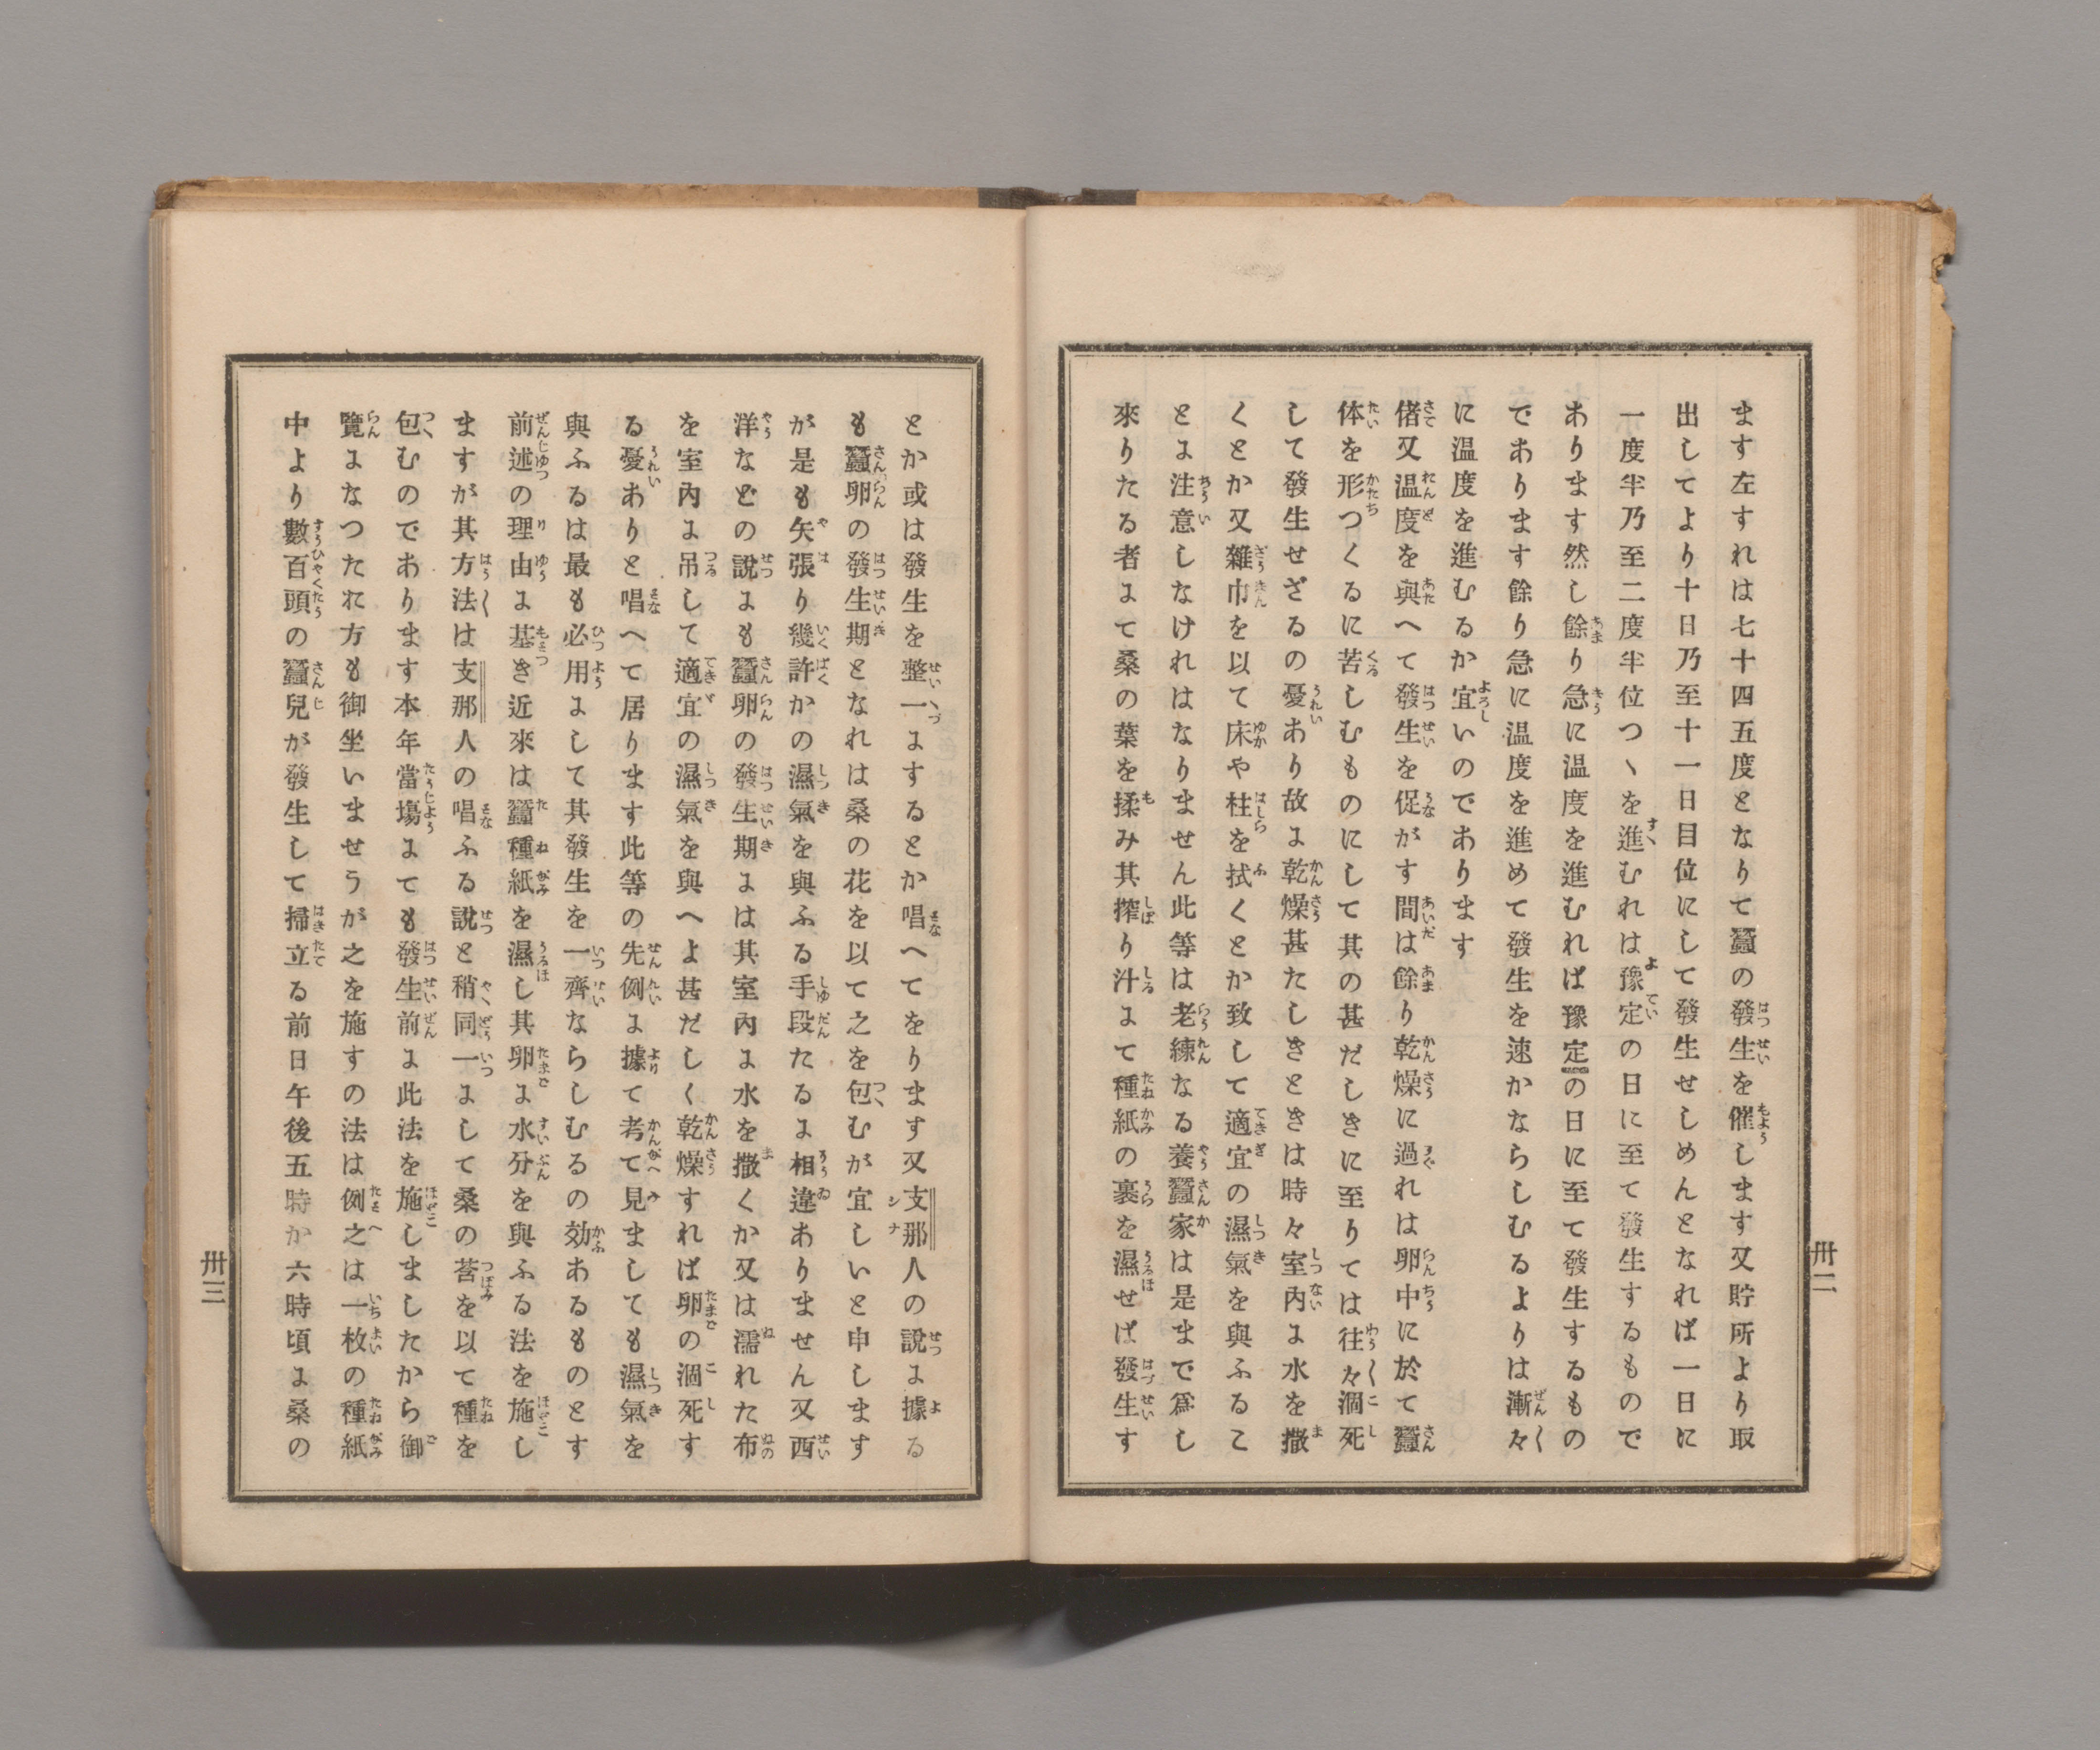 ます左すれは七十四五度となりて蠶の發生を催します又貯所より取
出してより十日乃至十一日目位にして發生せしめんとなれば一日に
一度半乃至二度半位つヽを進むれは豫定の日に至て發生するもので
あります然し餘り急に温度を進むれば豫定の日に至て發生するもの
であります餘り急に温度を進めて發生を速かならしむるよりは漸々
に温度を進むるか宜いのであります
偖又温度を與へて發生を促がす間は餘り乾燥に過れは卵中に於て蠶
体を形つくるに苦しむものにして其の甚だしきに至りては往々涸死
して發生せざるの憂あり故に乾燥甚たしきときは時々室内に水を撒
くとか又雜巾を以て床や柱を拭くとか致して適宜の濕氣を與ふるこ
とに注意しなけれはなりません此等は老練なる養蠶家は是まで爲し
來りたる者にて桑の葉を揉み其搾り汁にて種紙の裏を濕せば發生す
卅二
とか或は發生を整一にするとか唱へてをります又支那人の說に據る
も蠶卵の發生期となれは桑の花を以て之を包むが宜しいと申します
が是も矢張り幾許かの濕氣を與ふる手段たるに相違ありません又西
洋などの說にも蠶卵の發生期には其室內に水を撒くか又は濡れた布
を室內に吊して適宜の濕氣を與へよ甚だしく乾燥すれば卵の涸死す
る憂ありと唱へて居ります此等の先例に據て考て見ましても濕氣を
與ふるは最も必用にして其發生を一齊ならしむるの効あるものとす
前述の理由に基き近來は蠶種紙を濕し其卵に水分を與ふる法を施し
ますが其方法は支那人の唱ふる說と稍同一にして桑の莟を以て種を
包むのであります本年當塲にても發生前に此法を施しましたから御
覽になつたれ方も御坐いませうが之を施すの法は例之は一枚の種紙
中より數百頭の蠶兒が發生して掃立る前日午後五時か六時頃に桑の
卅三